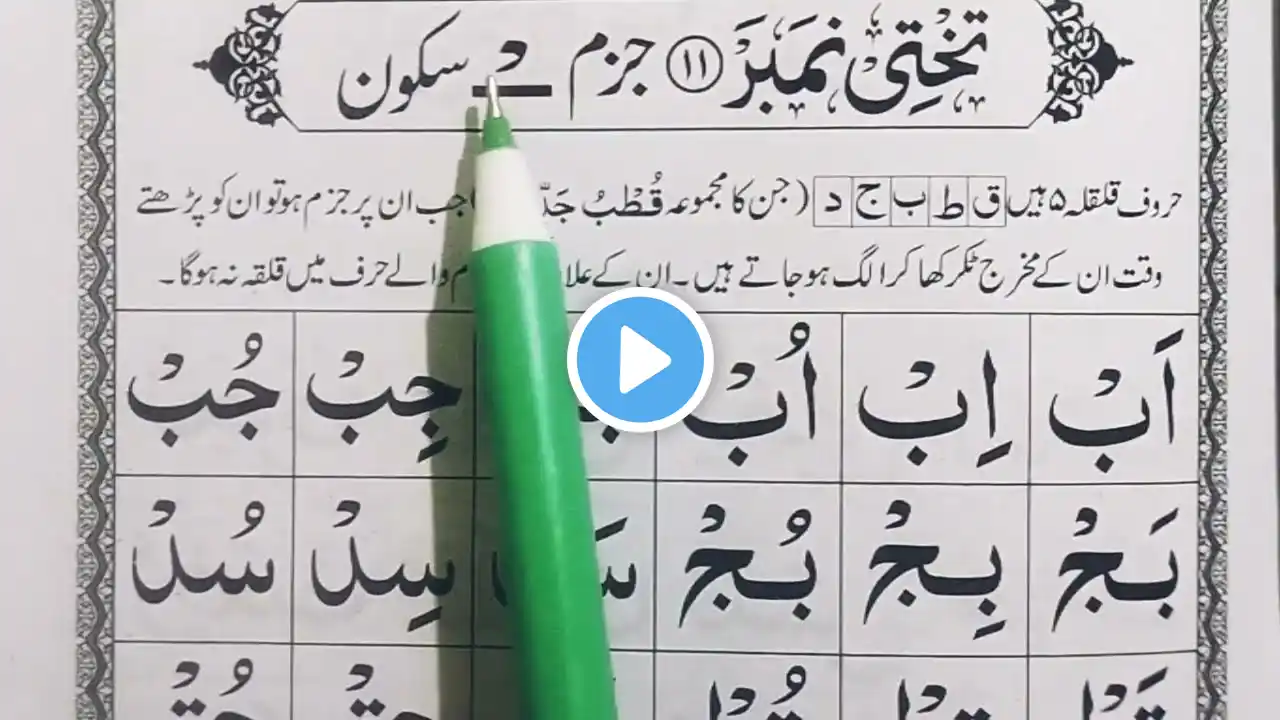 تختی نمبر ۱۱ جزم ـْ سکون
حروف قلقلہ ۵ ہیں ق ط ب ج د (جن کا مجموعہ قُطْبُ جَدّ جب ان پر جزم ہو تو ان کو پڑھتے
وقت ان کے مخرج ٹکر کھا کر الگ ہو جاتے ہیں۔ ان کے والے حرف میں قلقہ نہ ہوگا۔
اَبْ اِبْ اُبْ جِبْ جُبْ
بَجْ بِجْ بُجْ سِدْ سُدْ